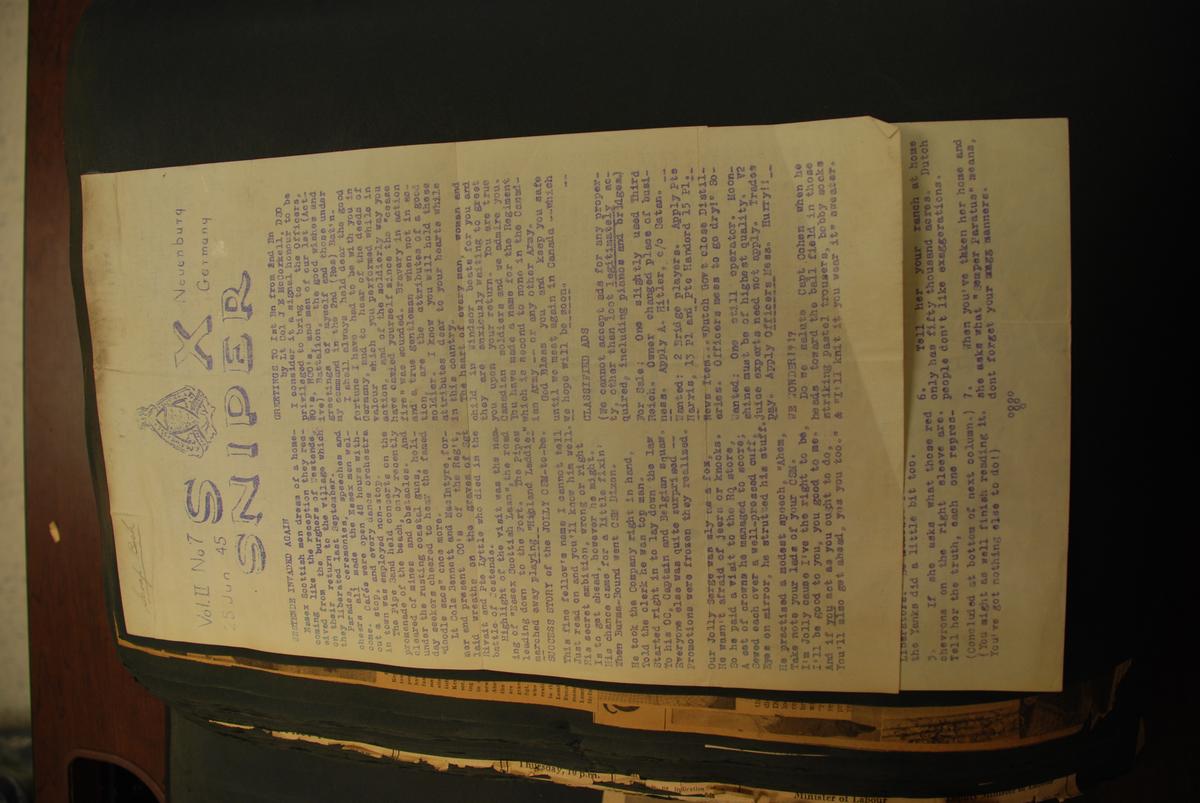 Vol. II No 7
25 Jun 45
S X
SNIPER
Neuenburg
Germany
WESTENDE INVADED AGAIN
Essex Scottish men dream of a home-
coming like the reception they rec-
eived from the burghers of Westende,
on their return to the village which
they liberated last September.
Parades, ceremonies, speeches and
cheers all made the Essex men wel-
come. Cafés were open 48 hours with-
out a stop and every dance orchestra
in town was employed non-stop.
The Pipe Band held concerts on the
promenade of the beach, only recently
cleared of mines and obstacles. And
under the rusting coastal guns, holi-
day seekers cheered to hear the famed
"doodle sacs" once more.
Lt Cols Bennett and MacIntyre, for-
mer and present CO's of the Reg't,
laid wreaths on the graves of Sgt
Kivait and Pte Lyttle who died in the
battle for Ostende.
Highlight of the visit was the nam-
ing of "Essex Scottish Lane", the road
leading down to the Port. The Pipes
marched away playing "Highland Laddie."
SUCCESS STORY of the JOLLY CSM-to-be.
This fine fellow's name I cannot tell
Just read on and you'll know him well.
His secret ambition, wrong or right
Is to get ahead, however he might.
His chance came for a little fixin'
When Burma-Bound went CSM Dixon.
He took the Company right in hand,
Told the clerk he was top man.
Started right in to lay down the law
To his OC, Captain and Belgian squaw
Everyone else was quite surprised --
Promotions were frozen they realized.
Our Jolly Serge was sly as a fox,
He wasn't afraid of jeers or knocks.
So he paid a visit to the RQ store,
A set of crowns he managed to score;
Sewed each over well-pressed cuff,
Eyes on mirror, he strutted his stuff.
He practised a modest speech, "Ahem,
Take note your lads of your CSM.
I'm Jolly cause I've the right to be,
I'll be good to you, you good to me.
And if you act as you ought to do,
You'll also get ahead, was you too."
GREETINGS TO 1st Bn from 2nd Bn
by Lt Col J E McCorkell, DSO.
I consider it a signal honour to be
privileged to bring to the Officers,
NCO's and men of our 1st (Act-
ive) Battalion, the good wishes and
greetings of myself and those under
my command in the 2nd (Res) Bat'n.
I shall always hold dear the good
fortune I have had to be with you in
Germany, and to hear of the deeds of
valour which you performed while in
action, and of the soldierly way you
have carried yourself since the "cease
fire" was sounded. Bravery in action
and a true gentleman when not in ac-
tion, are the attributes of a good
soldier. I know you will hold these
attributes dear to your hearts while
in this country.
The heart of every man, woman and
child in Windsor, beats for you and
they are anxiously waiting to greet
you upon your return. You are true
Canadian soldiers and we admire you.
You have made a name for the Regiment
which is second to none in the Canad-
ian Army -- or any other Army.
God bless you and keep you safe
until we meet again in Canada --which
we hope will be soon. --
CLASSIFIED ADS
(We cannot accept ads for any proper-
ty, other than loot legitimately ac-
quired, including pianos and bridges)
For Sale: One slightly used Third
Reich. Owner changed place of busi-
ness. Apply A. Hitler, c/o Satan. --
Wanted: 2 Bridge players. Apply Pte
Harris, 13 Pl and Pte Handord 15 Pl.
News Item..."Dutch Gov't close Distil-
leries. Officers mess to go dry!" So-
Wanted: One still operator. Moon-
shine must be of highest quality. V2
juice experts need not apply. Trades
pay. Apply Officers Mess. Hurry!! --
WE WONDER!!??
Do we salute Capt Cohen when he
heads toward the ball field in those
striking pastel trousers, bobby socks
& "I'll knit it you wear it" sweater.
the Yanks did a little bit too.
5. If she asks what those red
chevrons on the right sleeve are.
Tell her the truth, each one repres-
(Concluded at bottom of next column.)
(You might as well finish reading it.
You've got nothing else to do!)
6. Tell her your ranch at home
only has fifty thousand acres. Dutch
people don't like exaggerations.
7. When you've taken her home and
she asks what "Semper Paratus" means,
dont forget your manners.
Thursday, 10 p.m.
Minister of Labour